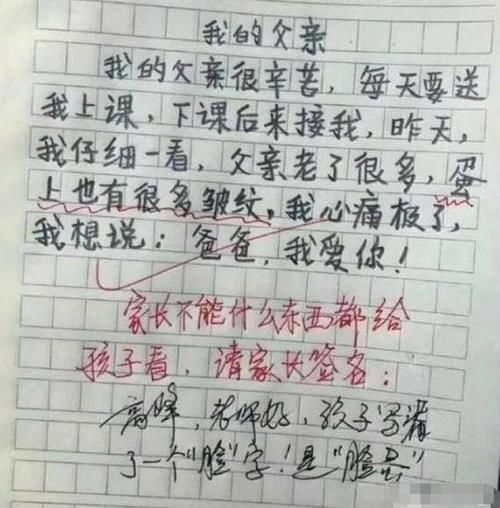 我的父亲
我的父亲很辛苦，每天要送
我上课，下课后来接我，昨天，
我仔细一看，父亲老了很多，蛋
上也有很多皱纹，我心痛极了，
我想说：爸爸，我爱你！
家长不能什么东西都给
孩子看，请家长签名：
高峰，老师好，孩子写错
了一个"脸"字！是"脸蛋"